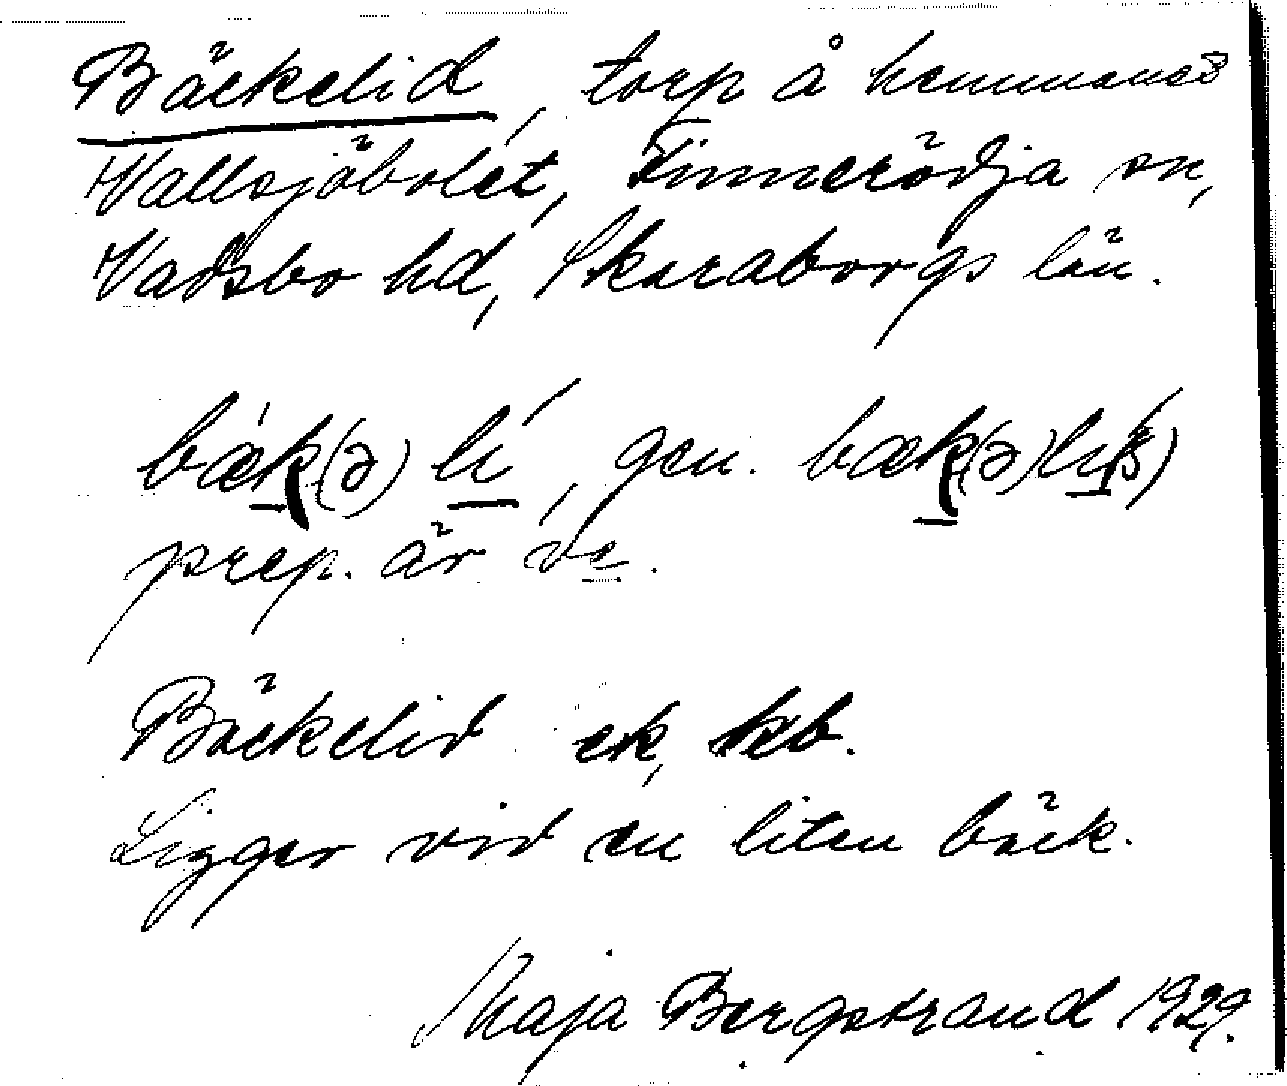 Bäckelid, torp å hemmanet
Wallsjöbolet, Finnerödja sn,
Vadsbo hd, Skaraborgs län.
bæ̀k(ə)lí, gen. bæk(ə)li(s)
prep. är ve.
Bäckelid ek, kb.
Ligger vid en liten bäck.
Maja Bergstrand 1929.